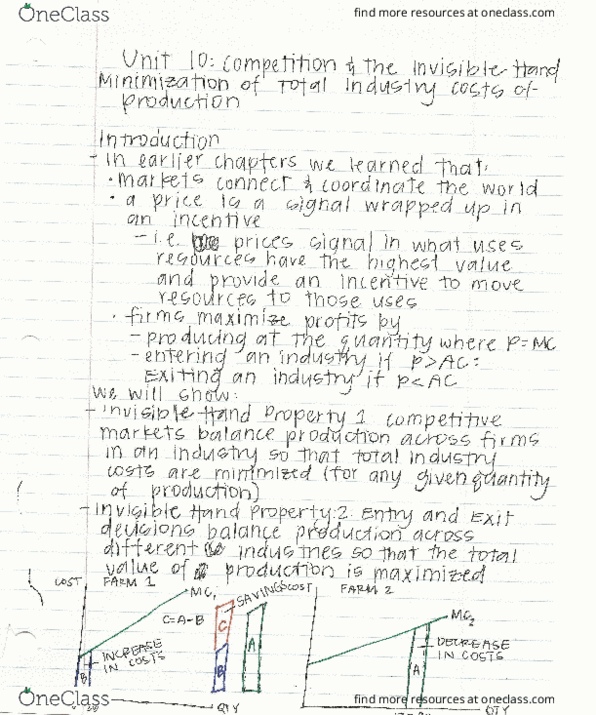 OneClass
find more resources at oneclass.com
Unit 10: Competition & the Invisible Hand
Minimization of Total Industry Costs of
production
Introduction
- In earlier chapters we learned that:
• markets connect & coordinate the world
• a price is a signal wrapped up in
an incentive
- i.e. prices signal in what uses
resources have the highest value
and provide an incentive to move
resources to those uses
• firms maximize profits by
- producing at the quantity where P=MC
- entering an industry if P>AC:
Exiting an industry if P<AC
We will show:
- Invisible Hand Property 1 competitive
markets balance production across firms
in an industry so that total industry
costs are minimized (for any given quantity
of production)
- Invisible Hand Property 2 Entry and Exit
decisions balance production across
different industries so that the total
value of production is maximized
COST FARM 1
MC1
C=A-B
INCREASE
IN COSTS
B
C
B
SAVINGS
A
QTY
COST FARM 2
MC2
DECREASE
IN COSTS
A
QTY
OneClass
find more resources at oneclass.com